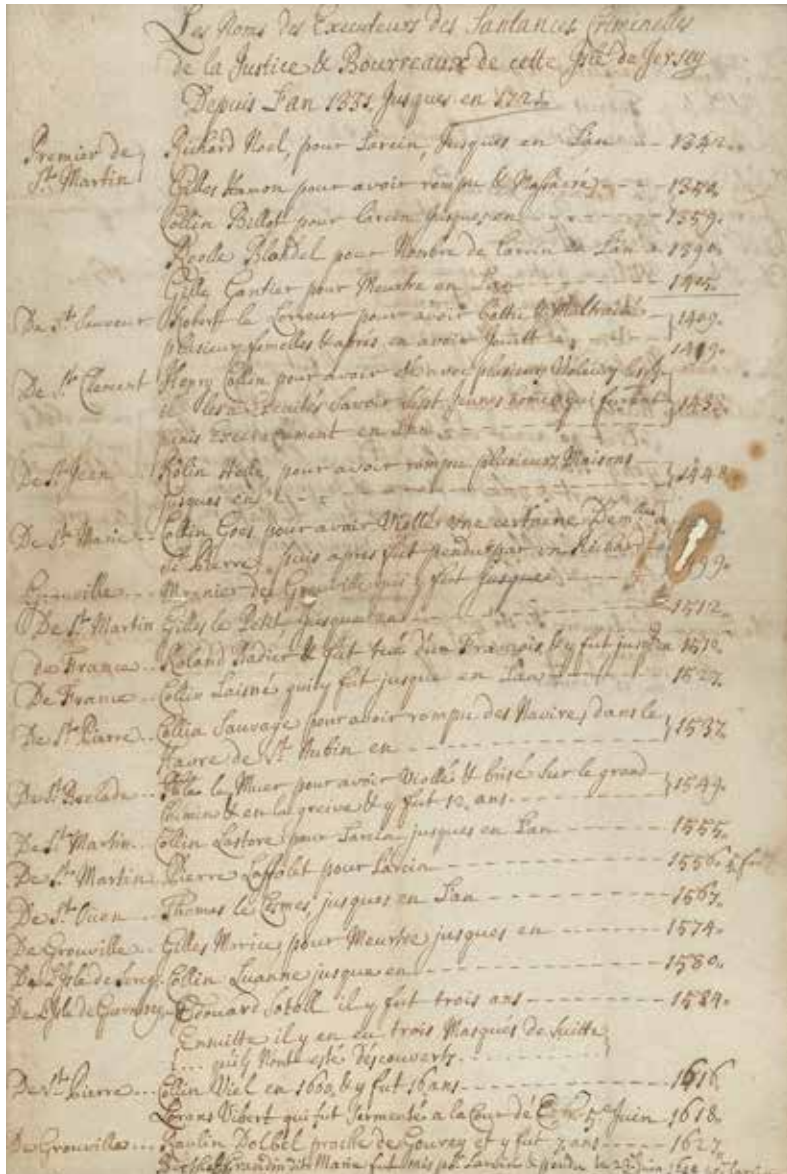 Les Noms des Executeurs des Santances Criminelles
de la Justice & Bourreaux de cette Isle de Jersey
Depuis L'an 1331, Jusques en 172
Premier de St. Martin Richard Noel, pour Larcin, Jusques en L'an 1342.
Gilles Hamon pour avoir rompu & Massacré 1350.
Collin Billot pour larcin jusques en 1359.
Blondel pour Nombre de Larcin en L'an 1390.
Gille Gantier pour Meurtre en L'an 1405.
De St. Sauveur Robert le pour avoir battu & Maltraité 1409.
plusieurs femelles & apres en avoir
De St. Clement Henry Collin pour avoir avec plusieurs
il les a Executés Savoir Sept Jeunes homes qui furent 143
en L'an
De St. Jean pour avoir rompu plusieurs Maisons 144
Jusques en
De St. Marie Collin Goes pour avoir Viollé une certaine Demlle. a
St. Pierre, puis apres fut pendu par un Richard
Grouville Meunier de Grouville qui y fut Jusques 99.
De St. Martin Gilles le Petit Jusque en 1512.
de France Roland & fut tué d'un François, & y fut jusqu'en 151
De France Collin Laisné qui y fut jusque en L'an 1527.
De St. Pierre Collin Sauvage pour avoir rompu des Navires dans le 1537.
Havre de St. Aubin en
De St. Brelade le Muer pour avoir Viollé & brisé sur le grand 1549.
Chimin & en la greive & y fut 12 ans
De St. Martin Collin Lastore pour Larcin, jusques en L'an 1555.
De St. Martin Pierre Laffolet pour Larcin 1556.
De St. Ouen Thomas le jusques en L'an 1567.
De Grouville Gilles pour Meurtre jusques en 1574.
De L'Isle de Sercq Collin Luanne jusque en 1580.
De L'Isle de Guernsey Edouard il y fut trois ans 1584.
Ensuitte il y en eu trois Masqués de Suitte
qu'ils N'ont esté découverts
De St. Pierre Collin Viel en 1600, & y fut 16 ans 1616
Lorans Vibert qui fut Sermenté a la Cour de 5e. Juin 1618.
De Grouville Raulin Dolbel proche de Gourey et y fut 7 ans 1627.
Grandin dit Marie fut mis pr. Larcin & pendu